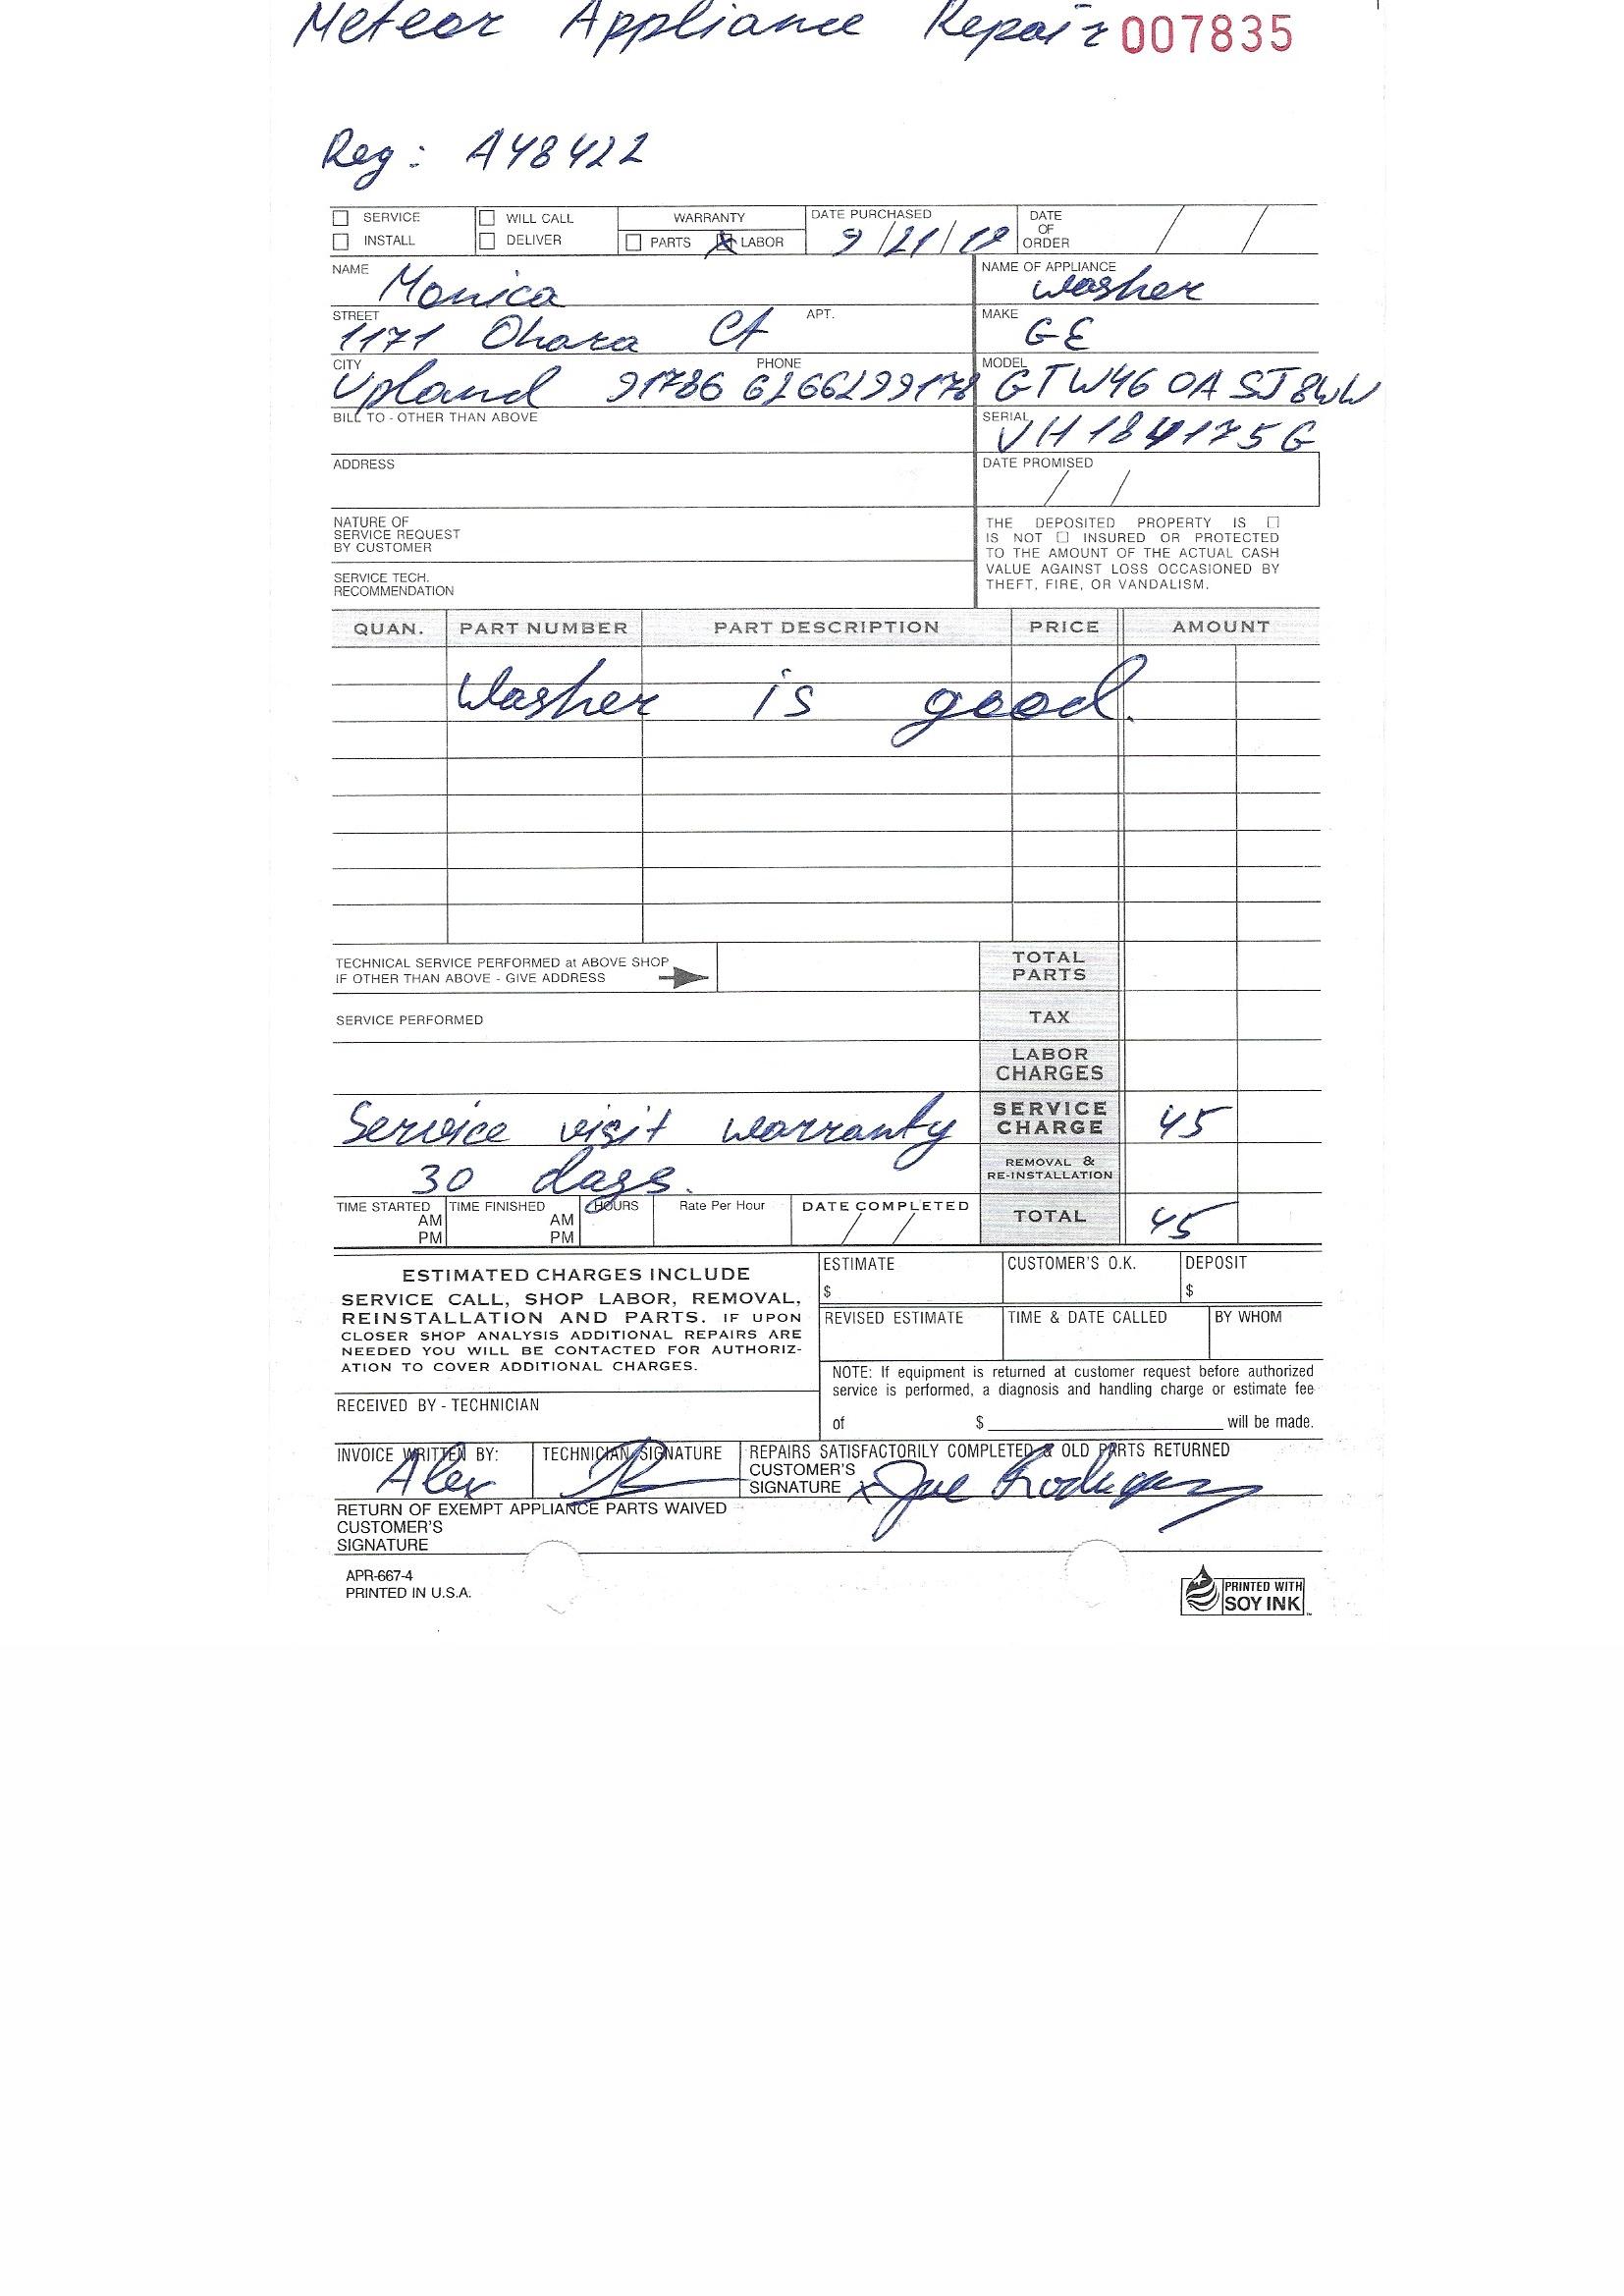 Meteor Appliance Repair 007835
Reg: A48422
SERVICE WILL CALL WARRANTY DATE PURCHASED DATE OF ORDER
INSTALL DELIVER PARTS LABOR 9/21/18
NAME Monica NAME OF APPLIANCE Washer
STREET 1171 Ohara Ct APT. MAKE GE
CITY Upland 91786 PHONE 6266299178 MODEL GTW460ASJ8WW
BILL TO - OTHER THAN ABOVE SERIAL VH184175G
ADDRESS DATE PROMISED / /
NATURE OF
SERVICE REQUEST
BY CUSTOMER
SERVICE TECH.
RECOMMENDATION
THE DEPOSITED PROPERTY IS ☐
IS NOT ☐ INSURED OR PROTECTED
TO THE AMOUNT OF THE ACTUAL CASH
VALUE AGAINST LOSS OCCASIONED BY
THEFT, FIRE, OR VANDALISM.
QUAN. PART NUMBER PART DESCRIPTION PRICE AMOUNT
Washer is good.
TECHNICAL SERVICE PERFORMED at ABOVE SHOP
IF OTHER THAN ABOVE - GIVE ADDRESS
TOTAL PARTS
SERVICE PERFORMED TAX
LABOR CHARGES
Service visit warranty SERVICE CHARGE 45
30 days. REMOVAL & RE-INSTALLATION
TIME STARTED AM PM TIME FINISHED AM PM HOURS Rate Per Hour DATE COMPLETED / / TOTAL 45
ESTIMATED CHARGES INCLUDE
SERVICE CALL, SHOP LABOR, REMOVAL,
REINSTALLATION AND PARTS. IF UPON
CLOSER SHOP ANALYSIS ADDITIONAL REPAIRS ARE
NEEDED YOU WILL BE CONTACTED FOR AUTHORIZ-
ATION TO COVER ADDITIONAL CHARGES.
ESTIMATE $ CUSTOMER'S O.K. DEPOSIT $
REVISED ESTIMATE TIME & DATE CALLED BY WHOM
NOTE: If equipment is returned at customer request before authorized
service is performed, a diagnosis and handling charge or estimate fee
of $ will be made.
RECEIVED BY - TECHNICIAN
INVOICE WRITTEN BY: Alex TECHNICIAN SIGNATURE REPAIRS SATISFACTORILY COMPLETED & OLD PARTS RETURNED
CUSTOMER'S
SIGNATURE x Joe Rodriguez
RETURN OF EXEMPT APPLIANCE PARTS WAIVED
CUSTOMER'S
SIGNATURE
APR-667-4
PRINTED IN U.S.A.
PRINTED WITH
SOY INK